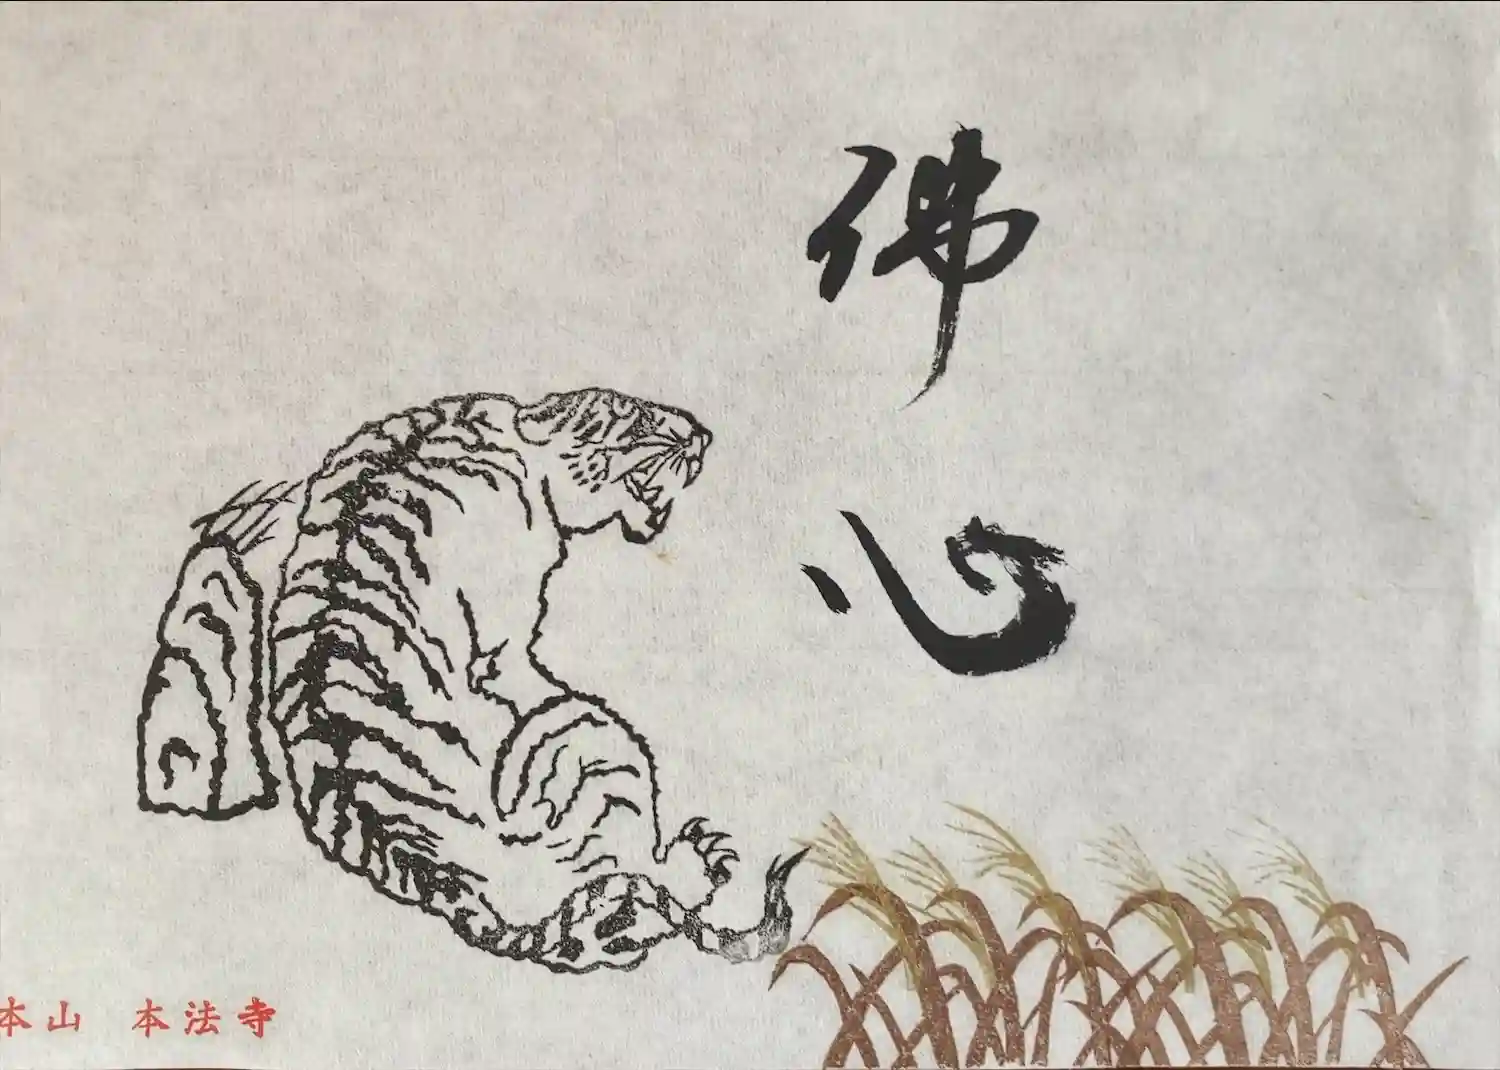 佛心
本山 本法寺